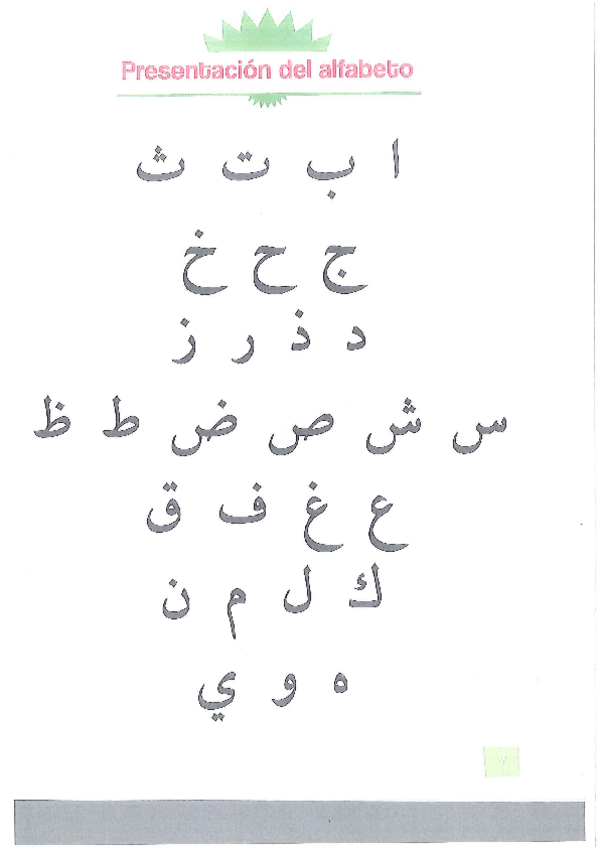 Presentación del alfabeto
ا ب ت ث
ج ح خ
د ذ ر ز
س ش ص ض ط ظ
ع غ ف ق
ك ل م ن
ه و ي